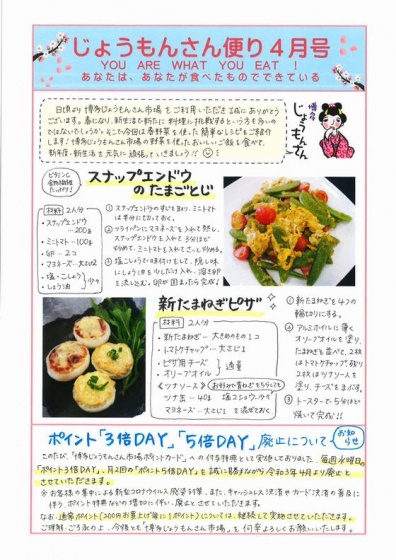 じょうもんさん便り4月号
YOU ARE WHAT YOU EAT !
あなたは、あなたが食べたものでできている
日頃より博多じょうもんさん市場をご利用いただき誠にありがとう
ございます。春になり、新生活で新たに料理に挑戦するという方も多いの
ではないでしょうか。そこで今回は春野菜を使った簡単なレシピをご紹介
します！博多じょうもんさん市場の野菜を使っておいしいご飯を食べて、
新年度・新生活を元気に頑張っていきましょう!!
博多
じょうもんさん
ビタミンと
食物繊維
たっぷり！
スナップエンドウ
のたまごとじ
材料 2人分
・スナップエンドウ
…200g
・ミニトマト…100g
・卵…2コ
・マヨネーズ…大さじ2
・塩・こしょう
・しょう油
少々
① スナップエンドウのすじを取り、ミニトマト
は半分に切っておく。
② フライパンにマヨネーズを入れて熱し、
スナップエンドウを入れて3分ほど
炒めて、ミニトマトを入れてさっと炒める。
③ 塩こしょうで味付けをして、隠し味
にしょう油を少しだけ入れ、溶き卵
を流し込む。卵が固まったら完成！
新たまねぎピザ
材料 2人分
・新たまねぎ…大きめのもの1コ
・トマトケチャップ…大さじ1
・ピザ用チーズ
・オリーブオイル
適量
《ツナソース》
お好みで青ねぎをちらしても
ツナ缶…40g 塩コショウ…少々
マヨネーズ…大さじ1 を混ぜておく
① 新たまねぎを4つの
輪切りにする。
② アルミホイルに薄く
オリーブオイルを塗り、
たまねぎを並べて、2枚
はトマトケチャップ、残り
2枚はツナソースを
塗り、チーズをまぶす。
③ トースターで5分ほど
焼いて完成!!
ポイント「3倍DAY」、「5倍DAY」廃止について
お知らせ
このたび、「博多じょうもんさん市場ポイントカード」への付与特典として実施しておりました、毎週水曜日の
「ポイント3倍DAY」、月2回の「ポイント5倍DAY」を誠に勝手ながら令和3年4月より廃止と
させていただきます。
※お客様の集中による新型コロナウイルス感染対策、また、キャッシュレス決済やカード決済の普及に
伴う、ポイント特典などの増加に伴い、廃止とさせていただきます。
なお、通常ポイント（200円お買上げ毎に1ポイント）については、継続して実施させていただきます。
ご理解・ご了承の上、今後とも「博多じょうもんさん市場」を何卒よろしくお願いいたします。